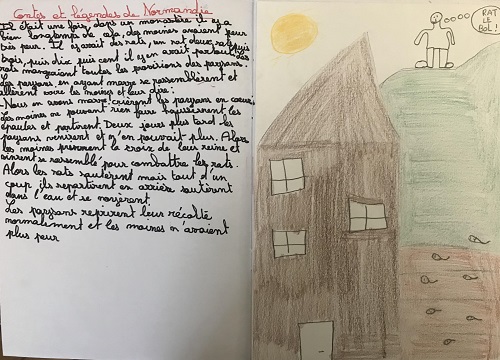 Contes et légendes de Normandie
Il était une fois, dans un monastère il y a
bien longtemps de cela, des moines avaient peur
très peur. Il y avait des rats, un rat deux rats puis
trois, puis dix puis cent il y en avait partout. Les
rats mangeaient toutes les provisions des paysans.
Les paysans en ayant marre se rassemblèrent et
allèrent voire les moines et leur dire:
-Nous en avons marre! crièrent les paysans en coeur.
Les moines ne pouvant rien faire haussèrent les
épaules et partirent. Deux jours plus tard les
paysans vinrent et n'en pouvait plus. Alors
les moines prennent la croix de leur reine et
vinrent se rassemble pour combattre les rats.
Alors les rats sautèrent mais tout d'un
coup ils repartirent en arrière sautèrent
dans l'eau et se noyèrent.
Les paysans reprirent leur récolte
normalement et les moines n'avaient
plus peur
RAT
LE
BOL!